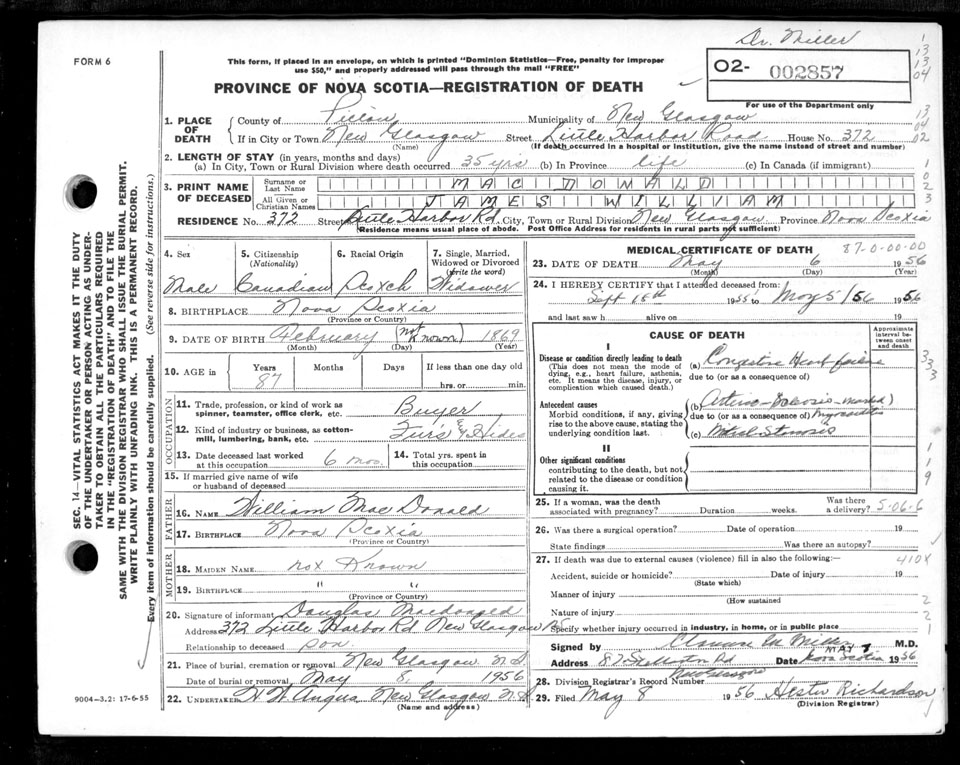 Dr. Miller
FORM 6
This form, if placed in an envelope, on which is printed "Dominion Statistics—Free, penalty for improper
use $50," and properly addressed will pass through the mail "FREE"
O2- 002857
PROVINCE OF NOVA SCOTIA—REGISTRATION OF DEATH
For use of the Department only
1. PLACE OF DEATH County of Pictou Municipality of New Glasgow
If in City or Town New Glasgow Street Little Harbor Road House No. 372
(Name) (If death occurred in a hospital or institution, give the name instead of street and number)
2. LENGTH OF STAY (in years, months and days)
(a) In City, Town or Rural Division where death occurred 35 yrs (b) In Province life (c) In Canada (if immigrant)
3. PRINT NAME OF DECEASED Surname or Last Name MAC DONALD
All Given or Christian Names JAMES WILLIAM
RESIDENCE No. 372 Street Little Harbor Rd. City, Town or Rural Division New Glasgow Province Nova Scotia
(Residence means usual place of abode. Post Office Address for residents in rural parts not sufficient)
4. Sex 5. Citizenship (Nationality) 6. Racial Origin 7. Single, Married, Widowed or Divorced (write the word)
Male Canadian Scotch Widower
8. BIRTHPLACE Nova Scotia
(Province or Country)
9. DATE OF BIRTH February (not known) 1869
(Month) (Day) (Year)
10. AGE in Years Months Days If less than one day old
87 hrs. or min.
OCCUPATION
11. Trade, profession, or kind of work as
spinner, teamster, office clerk, etc. Buyer
12. Kind of industry or business, as cotton-
mill, lumbering, bank, etc. Furs & Hides
13. Date deceased last worked
at this occupation 6 mos
14. Total yrs. spent in
this occupation
15. If married give name of wife
or husband of deceased
FATHER
16. NAME William Mac Donald
17. BIRTHPLACE Nova Scotia
(Province or Country)
MOTHER
18. MAIDEN NAME not Known
19. BIRTHPLACE " "
(Province or Country)
20. Signature of informant Douglas Macdonald
Address 372 Little Harbor Rd. New Glasgow NS
Relationship to deceased son.
21. Place of burial, cremation or removal New Glasgow N.S.
Date of burial or removal May 8, 1956
22. UNDERTAKER H. W. Angus New Glasgow N.S.
(Name and address)
MEDICAL CERTIFICATE OF DEATH 87-0-00-00
23. DATE OF DEATH May 6 1956
(Month) (Day) (Year)
24. I HEREBY CERTIFY that I attended deceased from:
Sept 15th 1955 to May 5/56 1956
and last saw h alive on 19
CAUSE OF DEATH
Approximate interval between onset and death
I
Disease or condition directly leading to death
(This does not mean the mode of
dying, e.g., heart failure, asthenia,
etc. It means the disease, injury, or
complication which caused death.)
(a) Congestive Heart failure
due to (or as a consequence of)
Antecedent causes
Morbid conditions, if any, giving
rise to the above cause, stating the
underlying condition last.
(b) Arterio-Sclerosis-marked)
due to (or as a consequence of) myocarditis
(c) Mitral Stenosis
II
Other significant conditions
contributing to the death, but not
related to the disease or condition
causing it.
25. If a woman, was the death
associated with pregnancy? Duration weeks. Was there a delivery? 5-06-6
26. Was there a surgical operation? Date of operation 19
State findings Was there an autopsy?
27. If death was due to external causes (violence) fill in also the following: 410X
Accident, suicide or homicide? Date of injury 19
(State which)
Manner of injury
(How sustained
Nature of injury
Specify whether injury occurred in industry, in home, or in public place
Signed by Miller M.D.
Address 87 Stellarton Rd Date MAY 7 1956
New Glasgow Nova Scotia
28. Division Registrar's Record Number
29. Filed May 8 1956 Hester Richardson
(Division Registrar)
SEC. 14—VITAL STATISTICS ACT MAKES IT THE DUTY
OF THE UNDERTAKER OR PERSON ACTING AS UNDER-
TAKER TO OBTAIN ALL THE PARTICULARS REQUIRED
IN THE "REGISTRATION OF DEATH" AND TO FILE THE
SAME WITH THE DIVISION REGISTRAR WHO SHALL ISSUE THE BURIAL PERMIT.
WRITE PLAINLY WITH UNFADING INK. THIS IS A PERMANENT RECORD.
Every item of information should be carefully supplied. (See reverse side for instructions.)
9004—3.2: 17-6-55